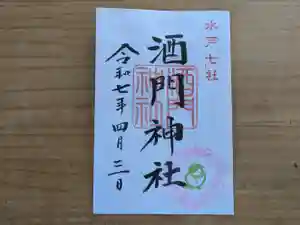 水戸七社
酒門神社
令和七年四月三日